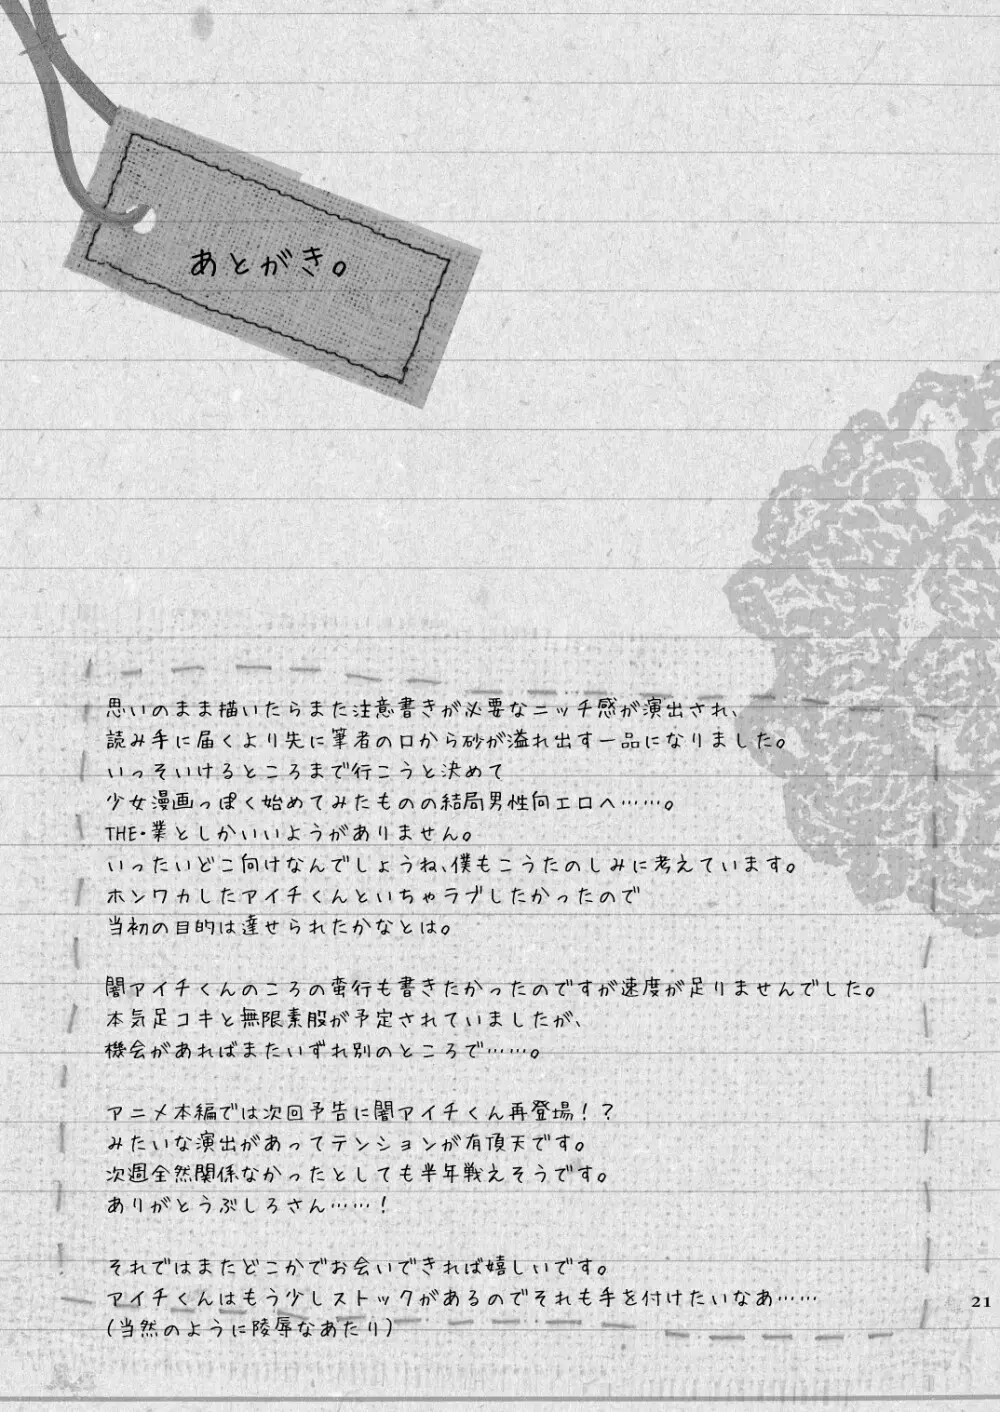 あとがき。
思いのまま描いたらまた注意書きが必要なニッチ感が演出され、
読み手に届くより先に筆者の口から砂が溢れ出す一品になりました。
いっそいけるところまで行こうと決めて
少女漫画っぽく始めてみたものの結局男性向エロへ……。
THE・業としかいいようがありません。
いったいどこ向けなんでしょうね、僕もこうたのしみに考えています。
ホンワカしたアイチくんといちゃラブしたかったので
当初の目的は達せられたかなとは。
闇アイチくんのころの蛮行も書きたかったのですが速度が足りませんでした。
本気足コキと無限素股が予定されていましたが、
機会があればまたいずれ別のところで……。
アニメ本編では次回予告に闇アイチくん再登場！？
みたいな演出があってテンションが有頂天です。
次週全然関係なかったとしても半年戦えそうです。
ありがとうぶしろさん……！
それではまたどこかでお会いできれば嬉しいです。
アイチくんはもう少しストックがあるのでそれも手を付けたいなあ……
(当然のように陵辱なあたり)
21